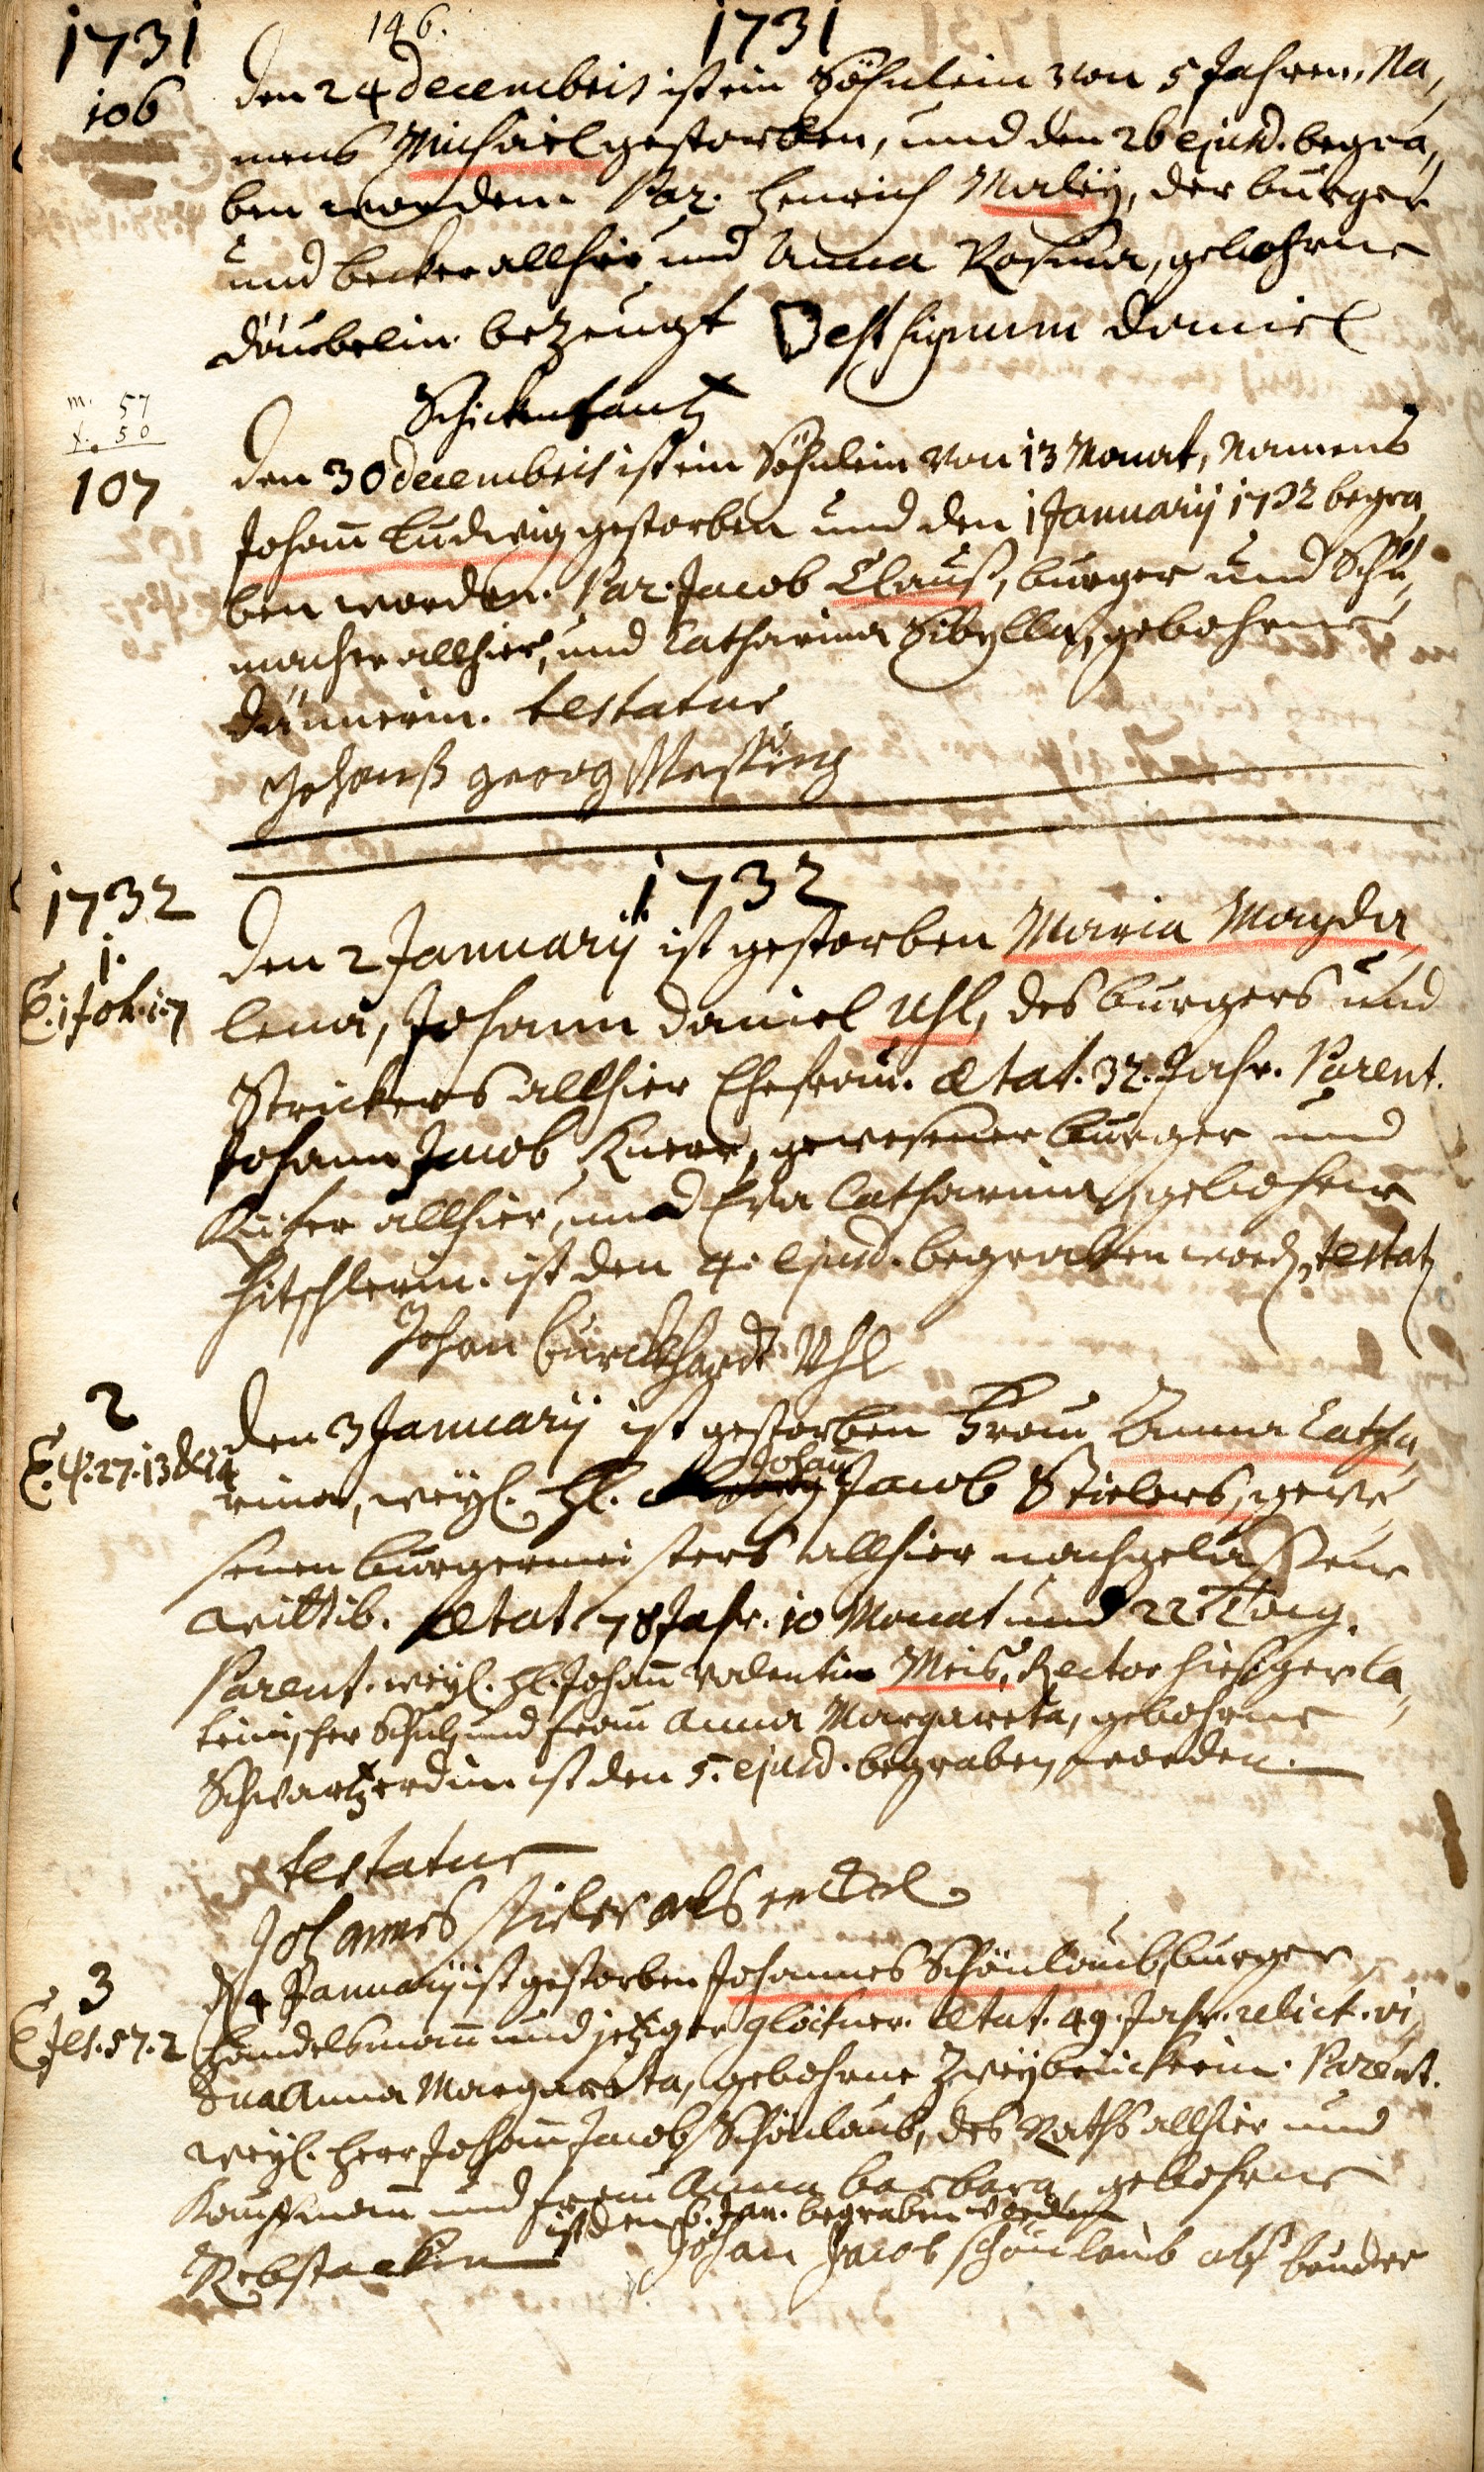 146.
1731 1731
106
den 24 decembris ist ein Söhnlein von 5 Jahren, Na,,
mens Michael gestorben, und den 26 ejusd. begra,,
ben worden. Par. Henrich Maleÿ, der burger
und becker allhier und Anna Rosina, gebohrne
däubelin. bezeugt est signum Daniel
Schickentantz
m. 57
f. 50
107
den 30 decembris ist ein Söhnlein von 13 Monat, Namens
Johan̄ Ludwig gestorben und den 1 Januarij 1732 begra,,
ben worden. Par. Jacob Clauß, burger und Schu,,
macher allhier, und Catharina Sibÿlla, gebohrne
dännerin. testatur
Johanß georg Messing
1732 1732
1.
C. 1 Joh. 1. 7
Den 2 Januarij ist gestorben Maria Magda,,
lena, Johann Daniel Uhl, des burgers und
Strickers allhier Ehefrau. Ætat. 32. Jahr. Parent.
Johann Jacob Knerr, gewesener burger und
Küfer allhier, und Eva Catharina, gebohrne
Hitschlerin. ist den 4. ejusd. begraben word. testat
Johan burckhardt Uhl
2
C. ψ. 27. 13 & 14
Den 3 Januarij ist gestorben Frau Anna Catha,,
rina, weÿl. H. Johan̄ Jacob Stielers, gewe,,
senen burgermeisters allhier nachgelassene
Wittib. Ætat. 78 Jahr. 10 Monat und 22 Tag.
Parent. weÿl. H. Johan̄ Valentin Meis, Rector hiesiger La,,
teinischer Schul, und frau Anna Margareta, gebohrne
Schwartzerdin. ist den 5. ejusd. begraben worden.
testatur
Johannes stieler als enckel
3
C. Jes. 57. 2
D. 4 Januarij ist gestorben Johannes Schönlaub, burger,
Handelsman̄ und jetziger glöckner. Ætat. 49. Jahr. relict. vi,,
dua Anna Margareta, gebohrne Zweÿbrückerin. Parent.
weÿl. Herr Johan̄ Jacob Schönlaub, des Raths allhier und
Kauffman̄ und frau Anna barbara, gebohrne
ist den 6. Jan. begraben worden
Rebstockin Johan Jacob schönlaub als bruder